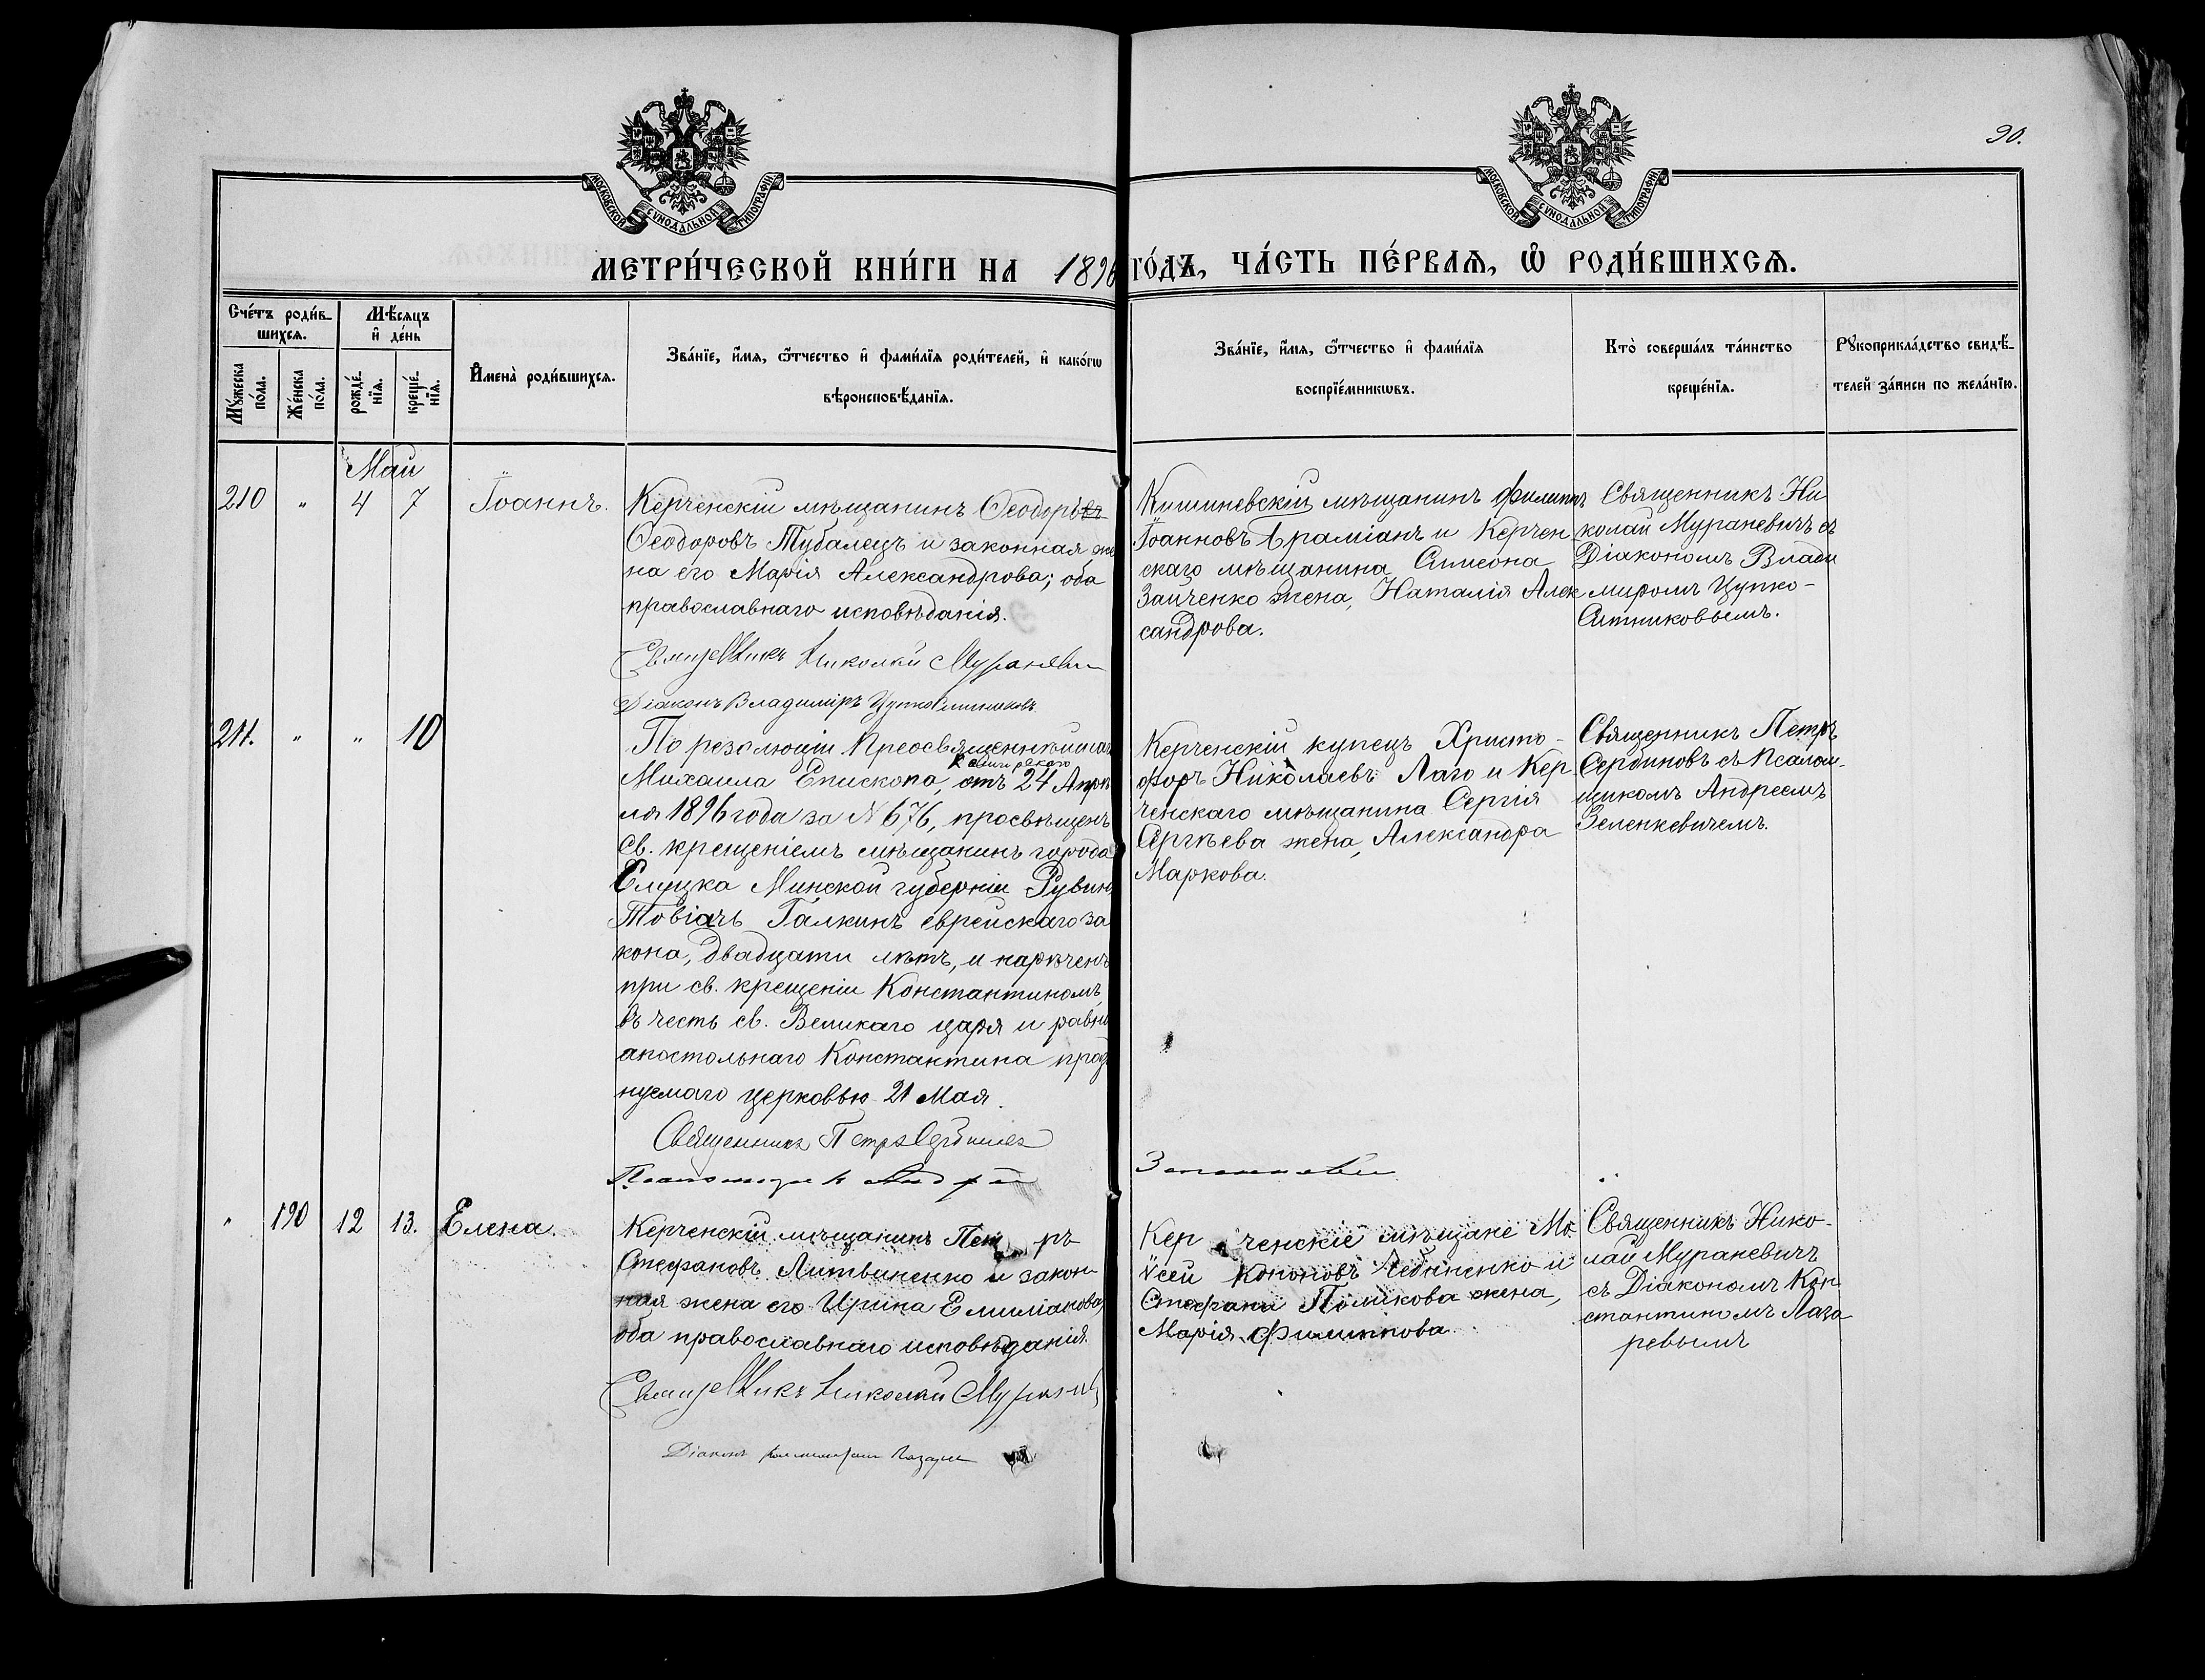 90.
МОСКОВСКОЙ СѴНОДАЛЬНОЙ ТИПОГРАФІИ
МОСКОВСКОЙ СѴНОДАЛЬНОЙ ТИПОГРАФІИ
МЕТРИ́ЧЕСКОЙ КНИ́ГИ НА 1896 ГО́ДЪ, ЧА́СТЬ ПЕ́РВАЯ, Ѡ҆ РОДИ́ВШИХСЯ.
Сче́тъ роди́в-
шихся.
Му́жеска по́ла.
Же́нска по́ла.
Мѣ́сяцъ
и҆ де́нь
рожде́-
нїя.
креще́-
нїя.
И҆мена̀ роди́вшихся.
Зва́нїе, и҆́мя, ѻ҆́тчество и҆ фами́лїя роди́телей, и҆ како́гѡ
вѣроисповѣ́данїя.
Зва́нїе, и҆́мя, ѻ҆́тчество и҆ фами́лїя
воспрїе́мникѡвъ.
Кто̀ соверша́лъ та́инство
креще́нїя.
Рꙋкоприкла́дство свидѣ́-
телей за́писи по жела́нїю.
Май
210 " 4 7 Іоаннъ.
Керченскій мѣщанинъ Ѳеодоръ
Ѳеодоровъ Тубалецъ и законная же
на его Марія Александрова; оба
православнаго исповѣданія.
Священникъ Николай Мураневич
Діаконъ Владиміръ Цупко Ситниковъ
Кишиневскій мѣщанинъ Филиппъ
Іоанновъ Араміанъ и Керчен
скаго мѣщанина Симеона
Зайченко жена, Наталія Алек
сандрова.
Священникъ Ни
колай Мураневичъ съ
Діакономъ Влади
миромъ Цупко-
Ситниковымъ.
211. " " 10
По резолюціи Преосвященнѣйшаго
Михаила Епископа, отъ 24 Апрѣ
ля 1896 года за N 676, просвѣщенъ
св. крещеніемъ мѣщанинъ города
Слуцка Минской губерніи Рувинъ
Товіачъ Галкинъ еврейскаго за
кона, двадцати лѣтъ, и нареченъ
при св. крещеніи Константиномъ,
въ честь св. Великаго царя и равно
апостольнаго Константина празд
нуемаго церковью 21 Мая.
Священникъ Петръ Сербиновъ
Псаломщикъ Андрей Зеленкевич
Керченскій купецъ Христо-
форъ Николаевъ Лаго и Кер
ченскаго мѣщанина Сергія
Сергѣева жена, Александра
Маркова.
Священникъ Петръ
Сербиновъ съ Псалом-
щикомъ Андреемъ
Зеленкевичемъ.
" 190 12 13. Елена.
Керченскій мѣщанинъ Петръ
Стефановъ Литвиненко и закон
ная жена его Ирина Емиліанова,
оба православнаго исповѣданія.
Священникъ Николай Муранев
Діаконъ Константинъ Лазаре
Керченскіе мѣщане Мо-
ѵсей Кононовъ и
Стефана Полякова жена,
Марія Филиппова.
Священникъ Нико-
лай Мураневичъ
съ Діакономъ Кон
стантиномъ Лаза
ревымъ